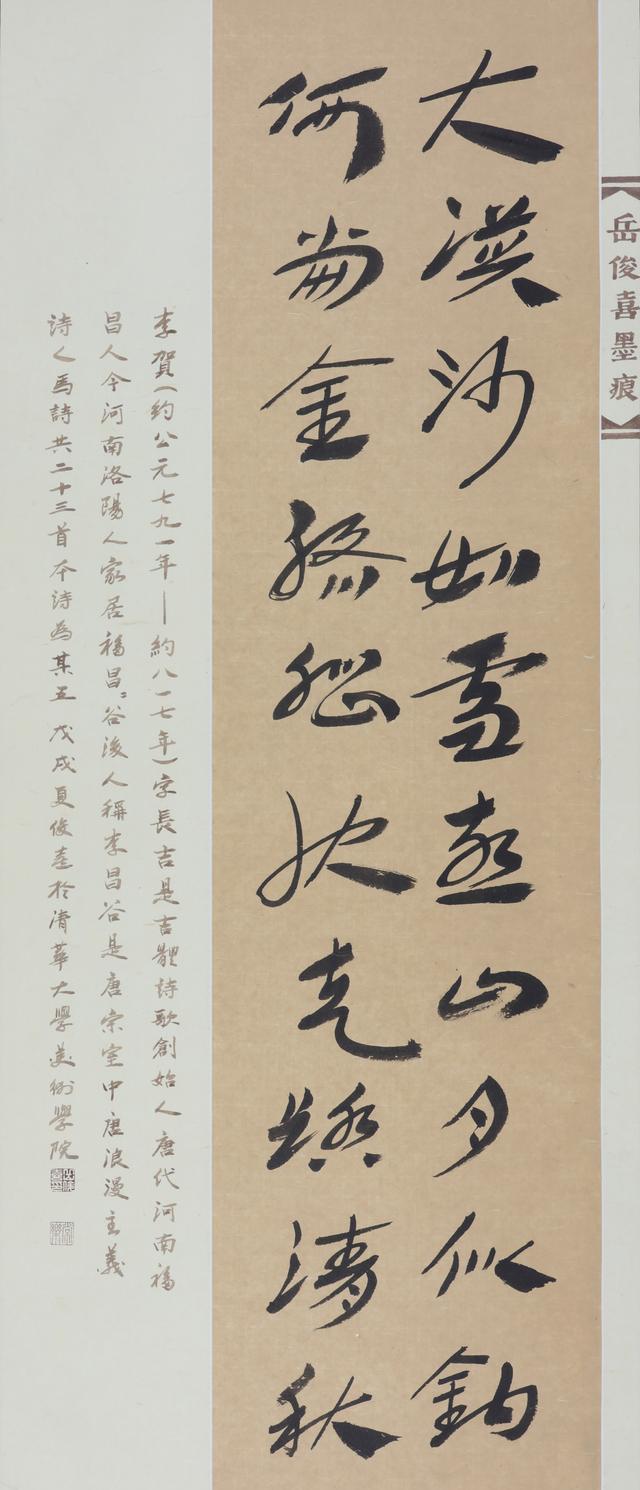 岳俊喜墨痕
大漠沙如雪燕山月似鈎
何當金絡腦快走踏清秋
李賀(约公元七九一年—約八一七年)字長吉是吉體詩歌創始人唐代河南福
昌人今河南洛陽人家居福昌〻谷後人稱李昌谷是唐宗室中唐浪漫主義
詩人馬詩共二十三首本詩為其五 戊戌夏俊喜於清華大學美術學院